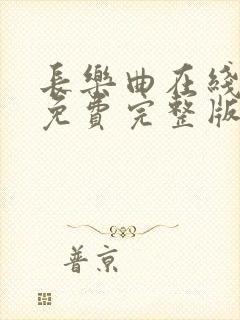 長樂曲在綫
免費完整版
普京